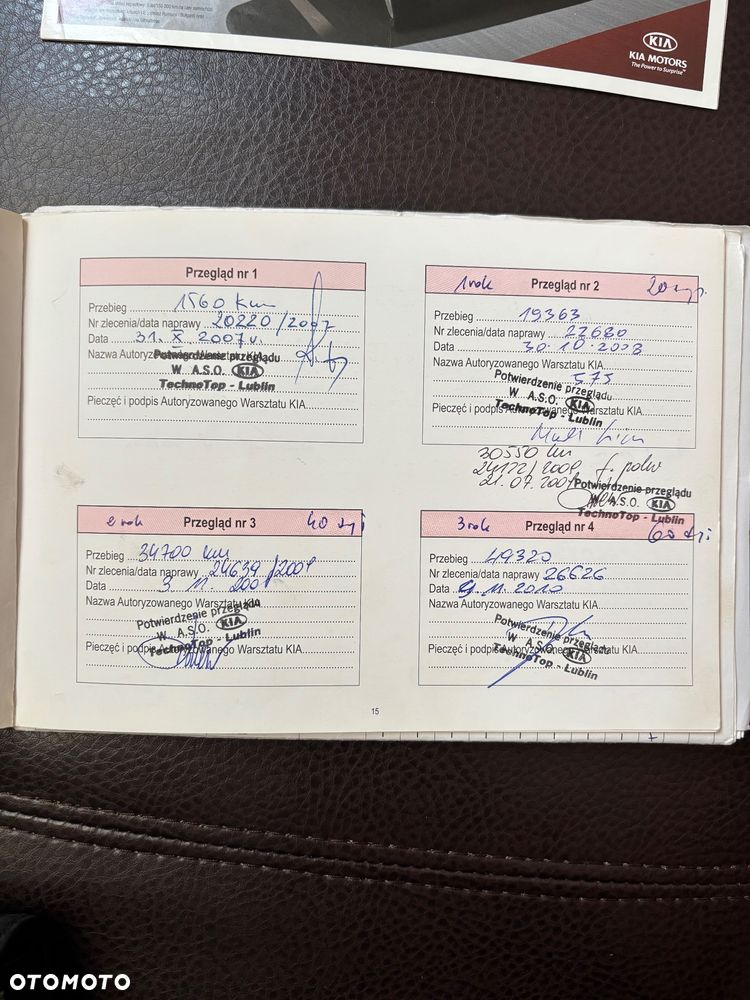 KIA
KIA MOTORS
The Power to Surprise™
Przegląd nr 1
Przebieg 1560 km
Nr zlecenia/data naprawy 20220/2007
Data 31. X. 2007r.
Nazwa Autoryzowanego Warsztatu KIA
Potwierdzenie przeglądu
W A.S.O. KIA
TechnoTop - Lublin
Pieczęć i podpis Autoryzowanego Warsztatu KIA
1 rok Przegląd nr 2 20
Przebieg 19363
Nr zlecenia/data naprawy 22680
Data 30.10.2008
Nazwa Autoryzowanego Warsztatu KIA
575
Potwierdzenie przeglądu
W A.S.O. KIA
TechnoTop - Lublin
Pieczęć i podpis Autoryzowanego Warsztatu KIA
30550 km
24122/2009
21.07.2009
Potwierdzenie przeglądu
W A.S.O. KIA
TechnoTop - Lublin
2 rok Przegląd nr 3 40
Przebieg 34700 km
Nr zlecenia/data naprawy 24639/2009
Data 3. 11. 2009
Nazwa Autoryzowanego Warsztatu KIA
Potwierdzenie przeglądu
W A.S.O. KIA
TechnoTop - Lublin
Pieczęć i podpis Autoryzowanego Warsztatu KIA
3 rok Przegląd nr 4 60
Przebieg 49320
Nr zlecenia/data naprawy 26626
Data 9.11.2010
Nazwa Autoryzowanego Warsztatu KIA
Potwierdzenie przeglądu
W A.S.O. KIA
TechnoTop - Lublin
Pieczęć i podpis Autoryzowanego Warsztatu KIA
15
OTOMOTO